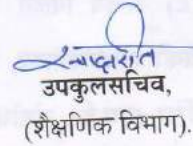 उपकुलसचिव,
(शैक्षणिक विभाग).